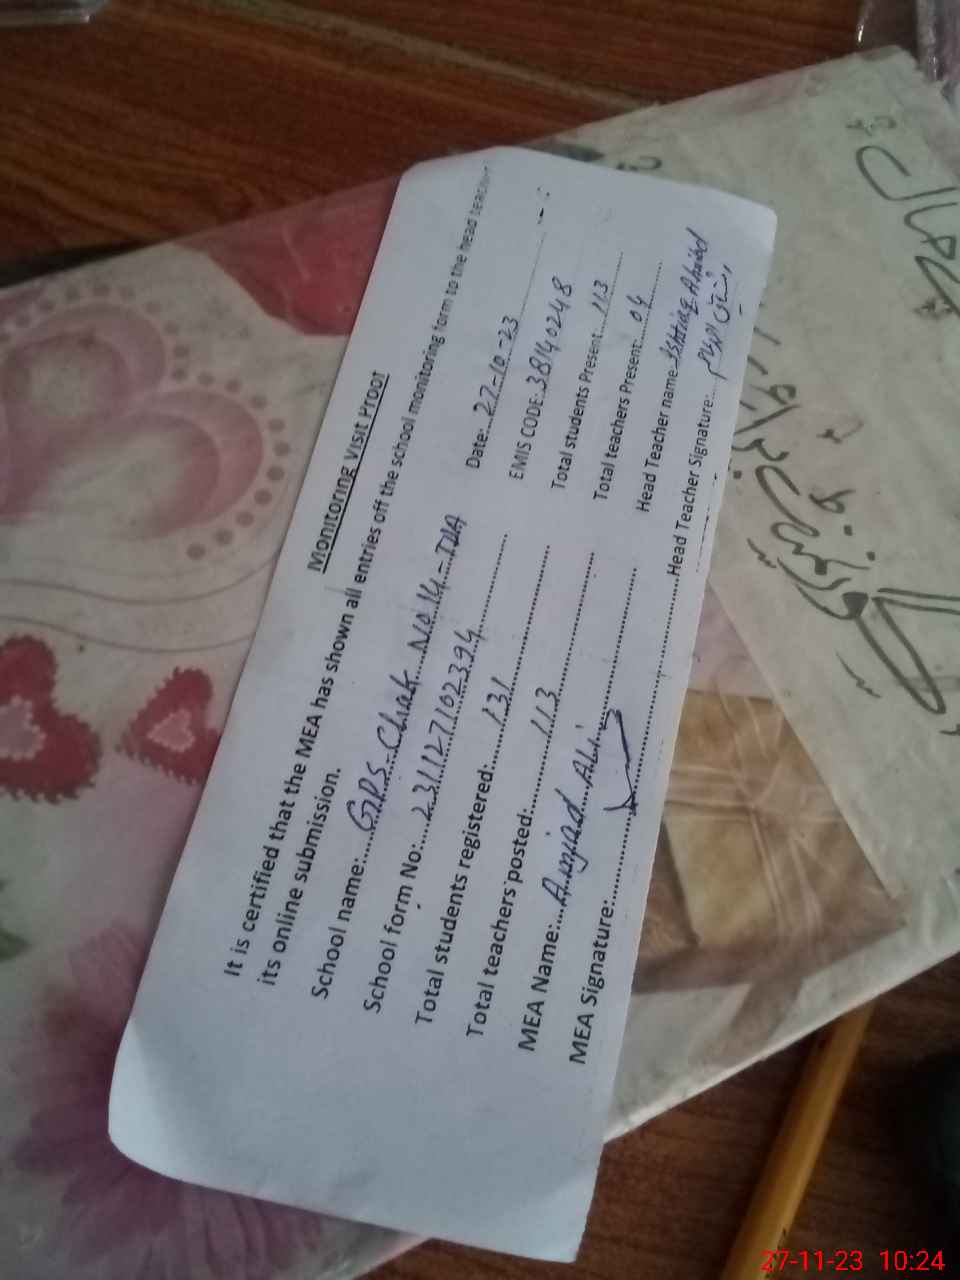 Monitoring Visit Proof
It is certified that the MEA has shown all entries off the school monitoring form to the head teacher
its online submission.
School name: GPS Chak No 14-TDA
Date: 27-10-23
School form No: 231127102394
EMIS CODE: 38140248
Total students registered: 131
Total students Present: 113
Total teachers posted: 113
Total teachers Present: 04
MEA Name: Amjad Ali
Head Teacher name Ishtiaq Ahmad
MEA Signature:
Head Teacher Signature:
27-11-23 10:24